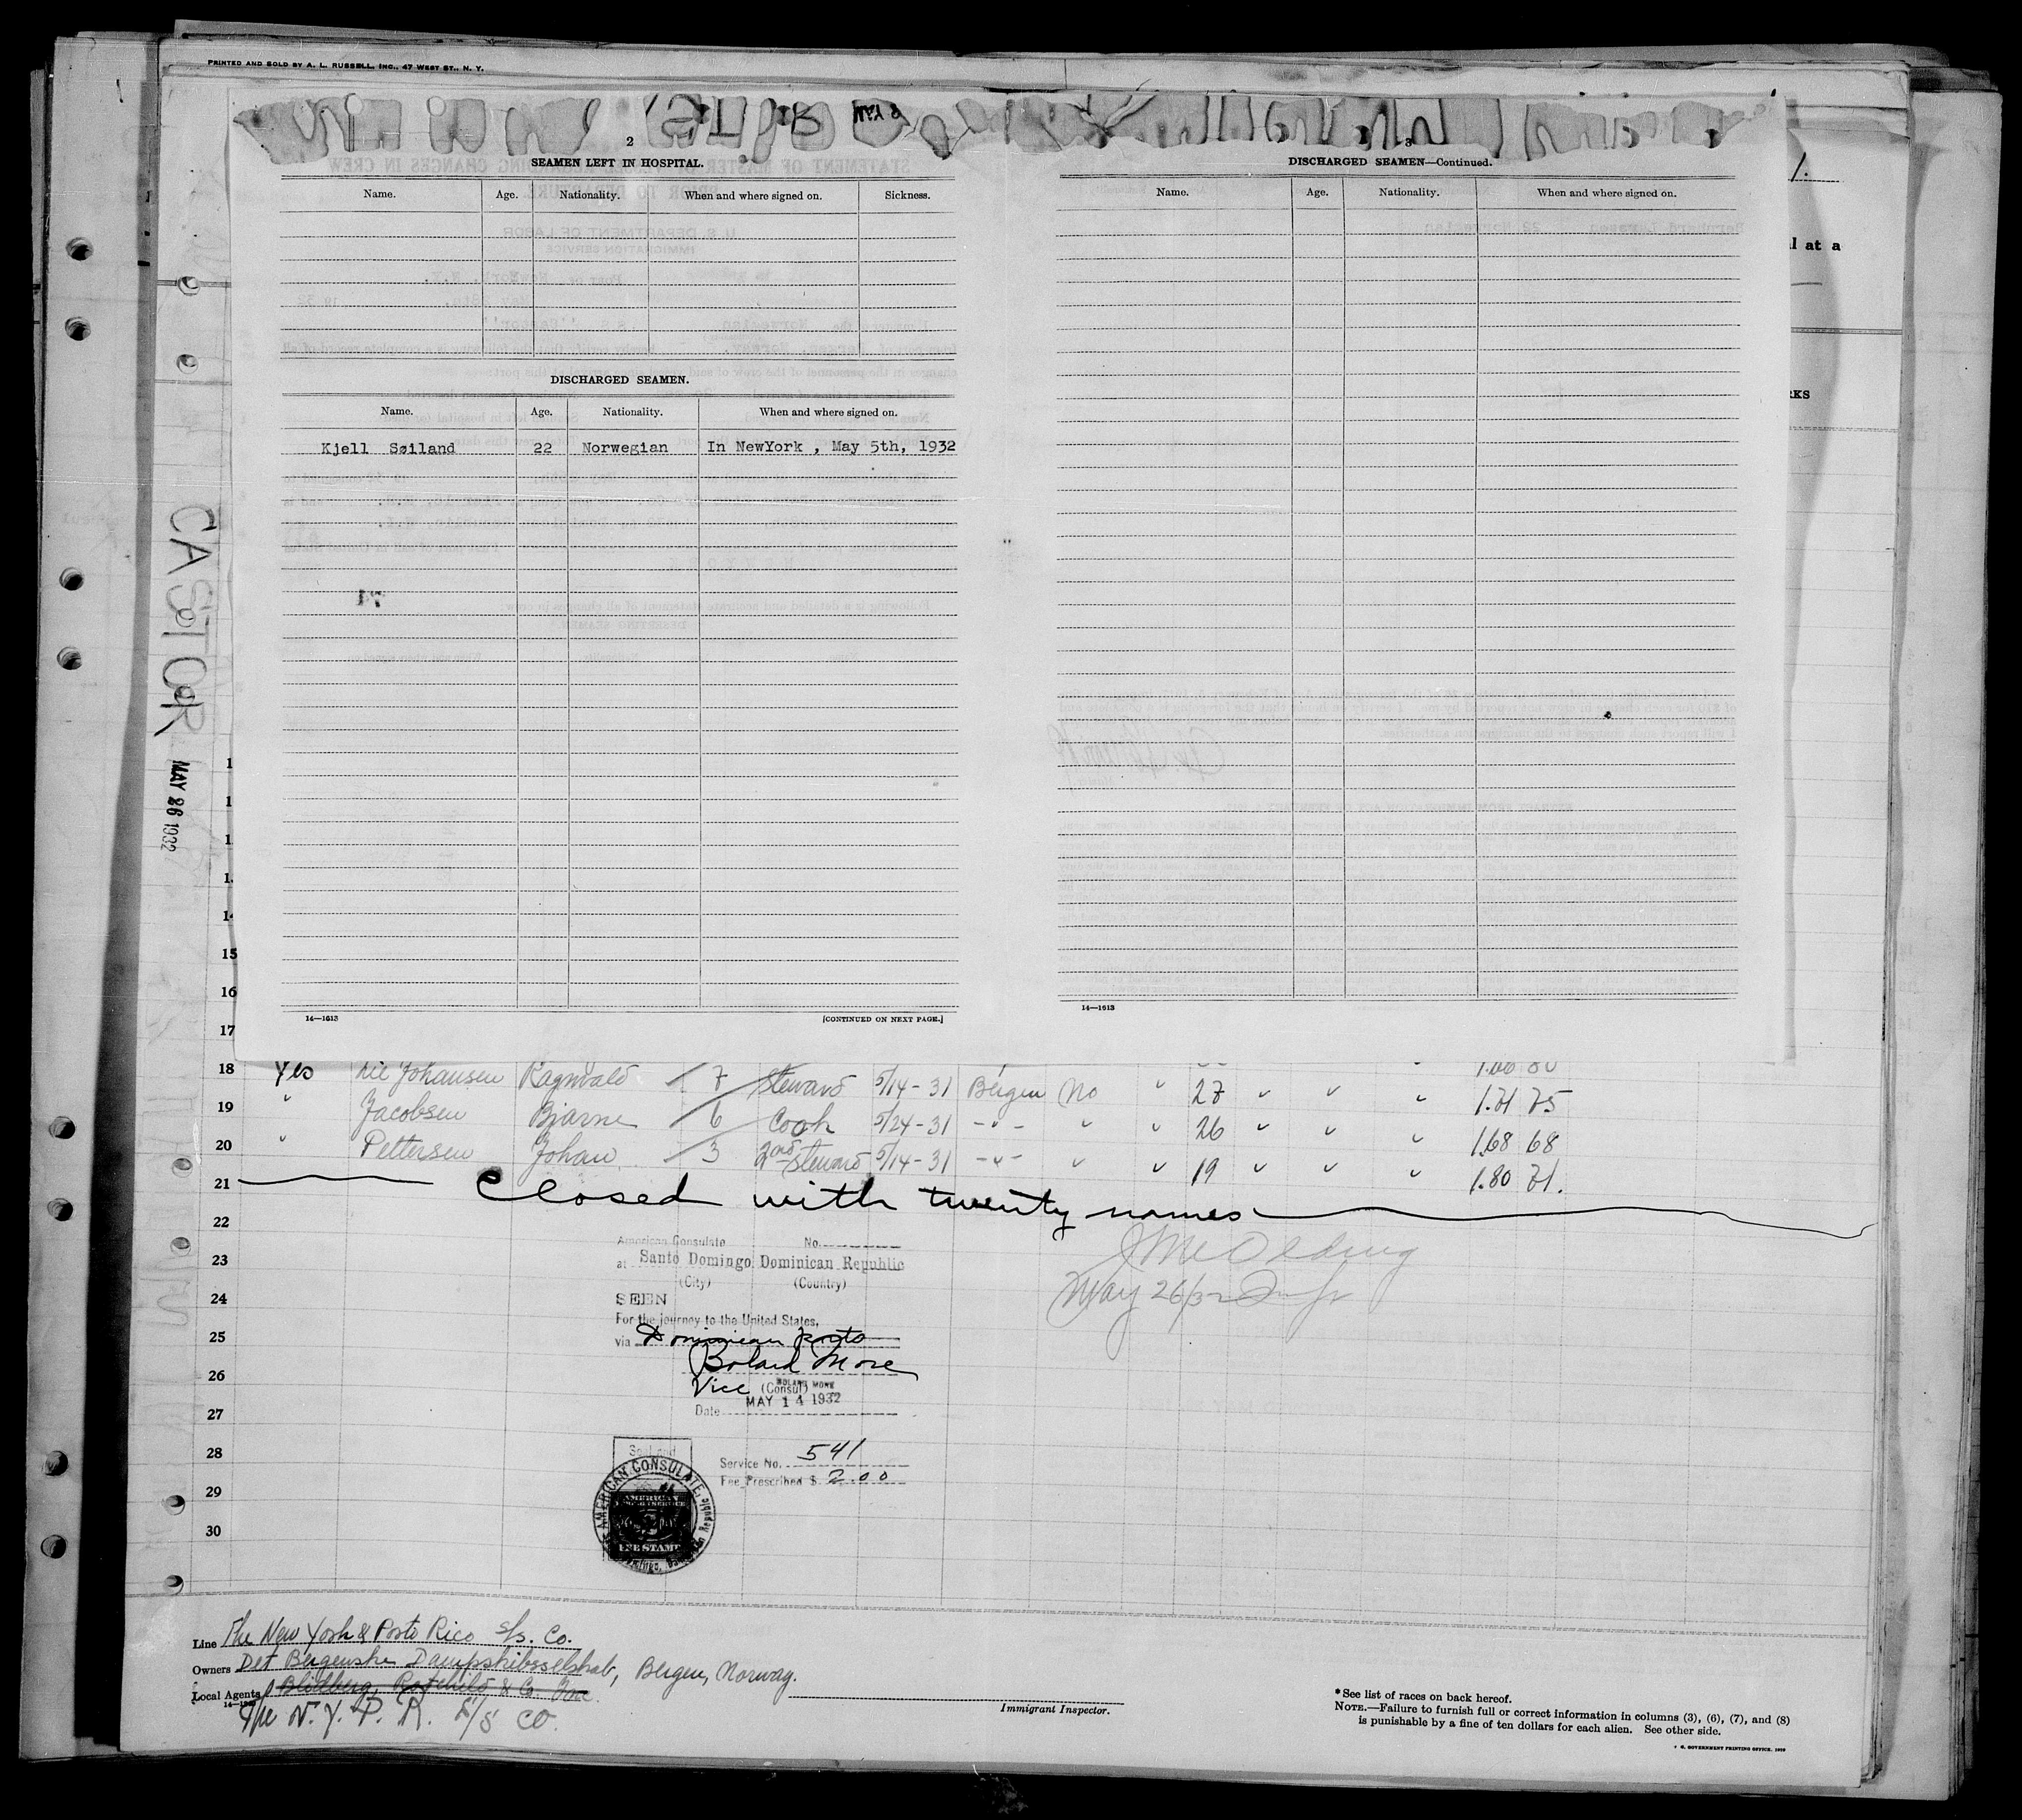 PRINTED AND SOLD BY A. L. RUSSELL, INC., 47 WEST ST., N. Y.
2
SEAMEN LEFT IN HOSPITAL.
Name. Age. Nationality. When and where signed on. Sickness.
DISCHARGED SEAMEN.
Name. Age. Nationality. When and where signed on.
Kjell Søiland 22 Norwegian In NewYork , May 5th, 1932
14—1613 [CONTINUED ON NEXT PAGE.]
3
DISCHARGED SEAMEN—Continued.
Name. Age. Nationality. When and where signed on.
14—1613
l at a
RKS
CASTOR
MAY 26 1932
15
16
17
18 Yes Lie Johansen Ragnvald 7 Steward 5/14-31 Bergen No 27 1.71 75
19 " Jacobsen Bjarne 6 Cook 5/24-31 -"- " " 26 1.68 68
20 " Pettersen Johan 3 2nd Steward 5/14-31 -"- " " 19 1.80 71.
21 Closed with twenty names
22
23
24
25
26
27
28
29
30
American Consulate No.
at Santo Domingo, Dominican Republic
(City) (Country)
SEEN
For the journey to the United States,
via Dominican ports
Bolard More
Vice (Consul)
BOLARD MORE
Date MAY 14 1932
Service No. 541
Fee Prescribed $ 2.00
AMERICAN CONSULATE
AMERICAN
FEE STAMP
May 26/32
Line The New York & Porto Rico S/s. Co.
Owners Det Bergenske Dampskibsselskab, Bergen, Norway.
Local Agents Blidberg, Rothchild & Co. Inc.
The N. Y. P. R. S/S CO.
Immigrant Inspector.
* See list of races on back hereof.
NOTE.—Failure to furnish full or correct information in columns (3), (6), (7), and (8)
is punishable by a fine of ten dollars for each alien. See other side.